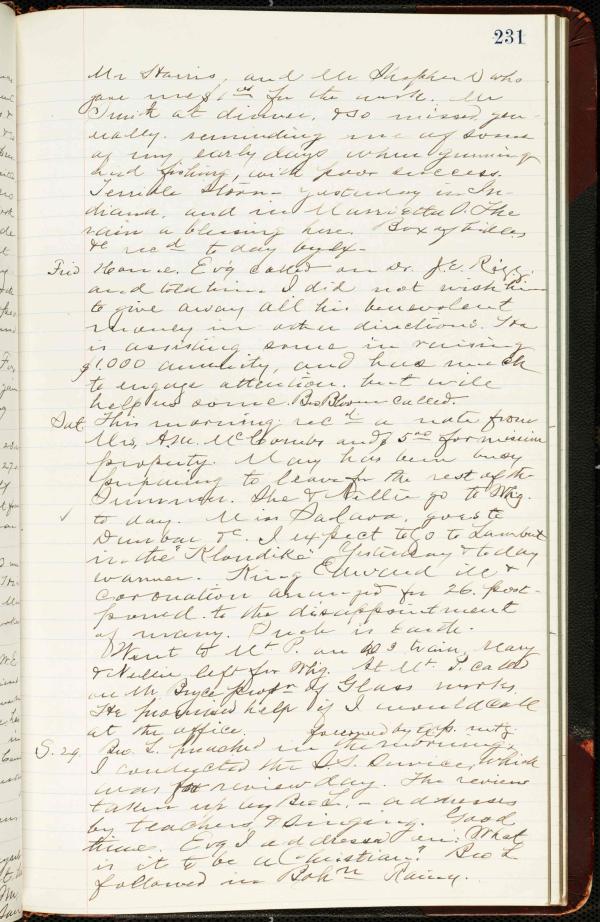 231
Mr Harris, and Mr Shepherd who
gave me $ for the work. Mr
Smith at dinner, & so missed, gen-
erally. reminding me of some
of my early days when gunning
and fishing, with poor success.
Terrible Storm yesterday in In-
diana, and in Marrietta O. The
rain a blessing here. Box of Bibles
&c recd to day by Ex-
Frid Home. Ev'g called on Dr. J.C. Rigg,
and told him I did not wish him
to give away all his benevolent
money in other directions. He
is assisting some in raising
$1.000 annuity, and has much
to engage attention. but will
help us some. Bro Bloom called.
Sat. This morning recd a note from
Mrs. A.M. McCombs and $5.00 for mission
property. Mary has been busy
preparing to leave for the rest of the
Summer. She & Nellie go to Whg.
to day. Miss goes to
Dunbar &c. I expect to go to Lambert
in the "Klondike" Yesterday & today
warmer. King Edward ill &
coronation arranged for 26. post-
poned. to the disappointment
of many. Such is Earth.
Went to Mt. P. on train, Mary
& Nellie left for Whg. At Mt. P. called
on Mr. Bryce of Glass works.
He promised help if I would call
at the office. followed by exp. mtg.
S. 29. Bro. L. preached in the morning,
I conducted the S.S. Service, which
was for review day. The review
taken up by Bro L. - addresses
by teachers, & singing. Good
time. Evg I addressed on: "What
is it to be a Christian?" Bro L
followed in Rainy.